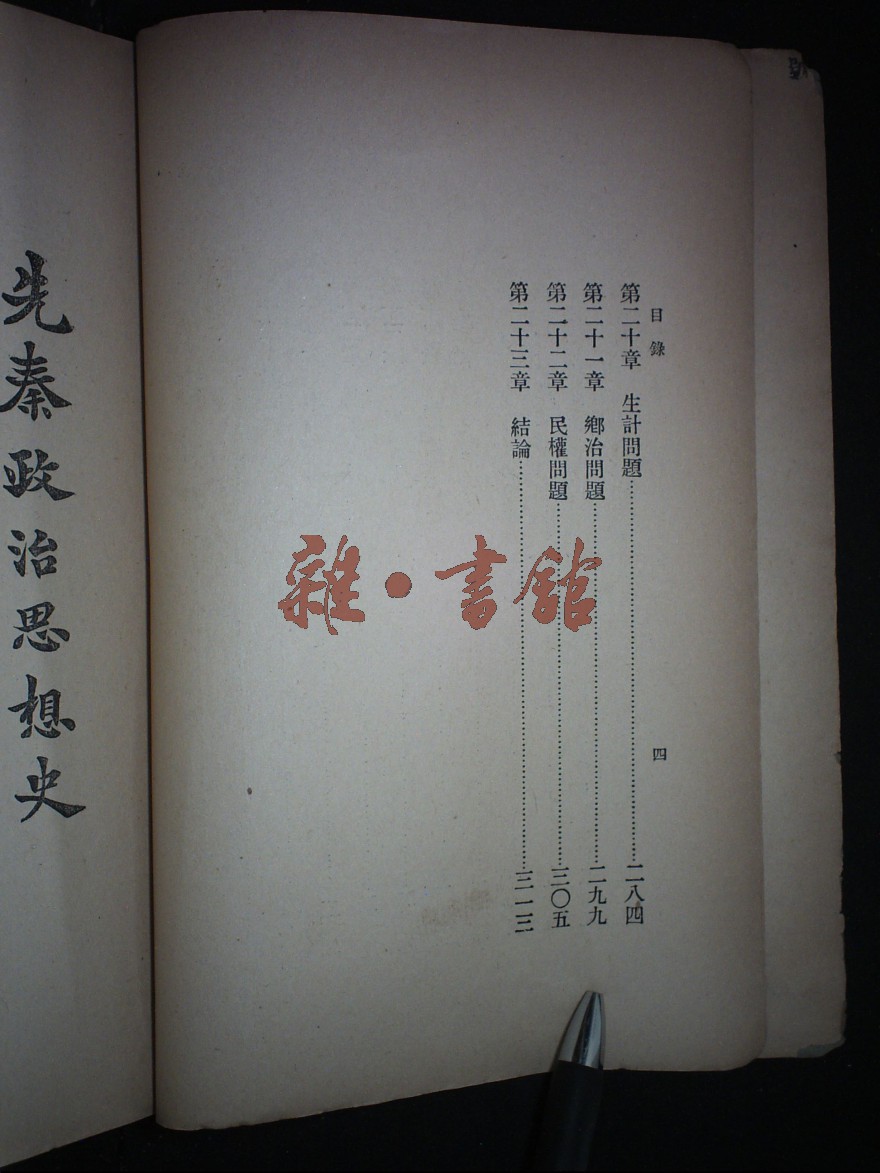 目錄
四
第二十章　生計問題……………………二八四
第二十一章　鄉治問題……………………二九九
第二十二章　民權問題……………………三〇五
第二十三章　結論……………………三一三
先秦政治思想史
雜・書館